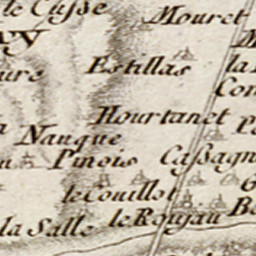 le Cusse
Mouret
Estillas
Hourtanet
Nauque
Pinois
Cassagn
le Couillot
la Salle
le Roujau